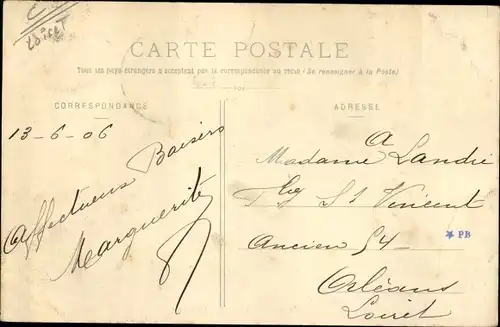 Loiret
CARTE POSTALE
Tous les pays étrangers n'acceptent pas la correspondance au recto (Se renseigner à la Poste)
CORRESPONDANCE
ADRESSE
13-6-06
Affectueux Baisers
Marguerite
A
Madame Landré
Fbg St Vincent
Ancien 54
* PB
Orléans
Loiret